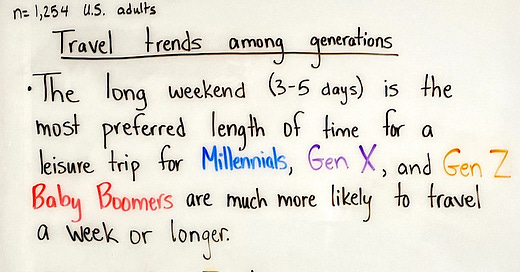 n=1,254 U.S. adults
Travel trends among generations
• The long weekend (3-5 days) is the
most preferred length of time for a
leisure trip for Millennials, Gen X, and Gen Z
Baby Boomers are much more likely to travel
a week or longer.